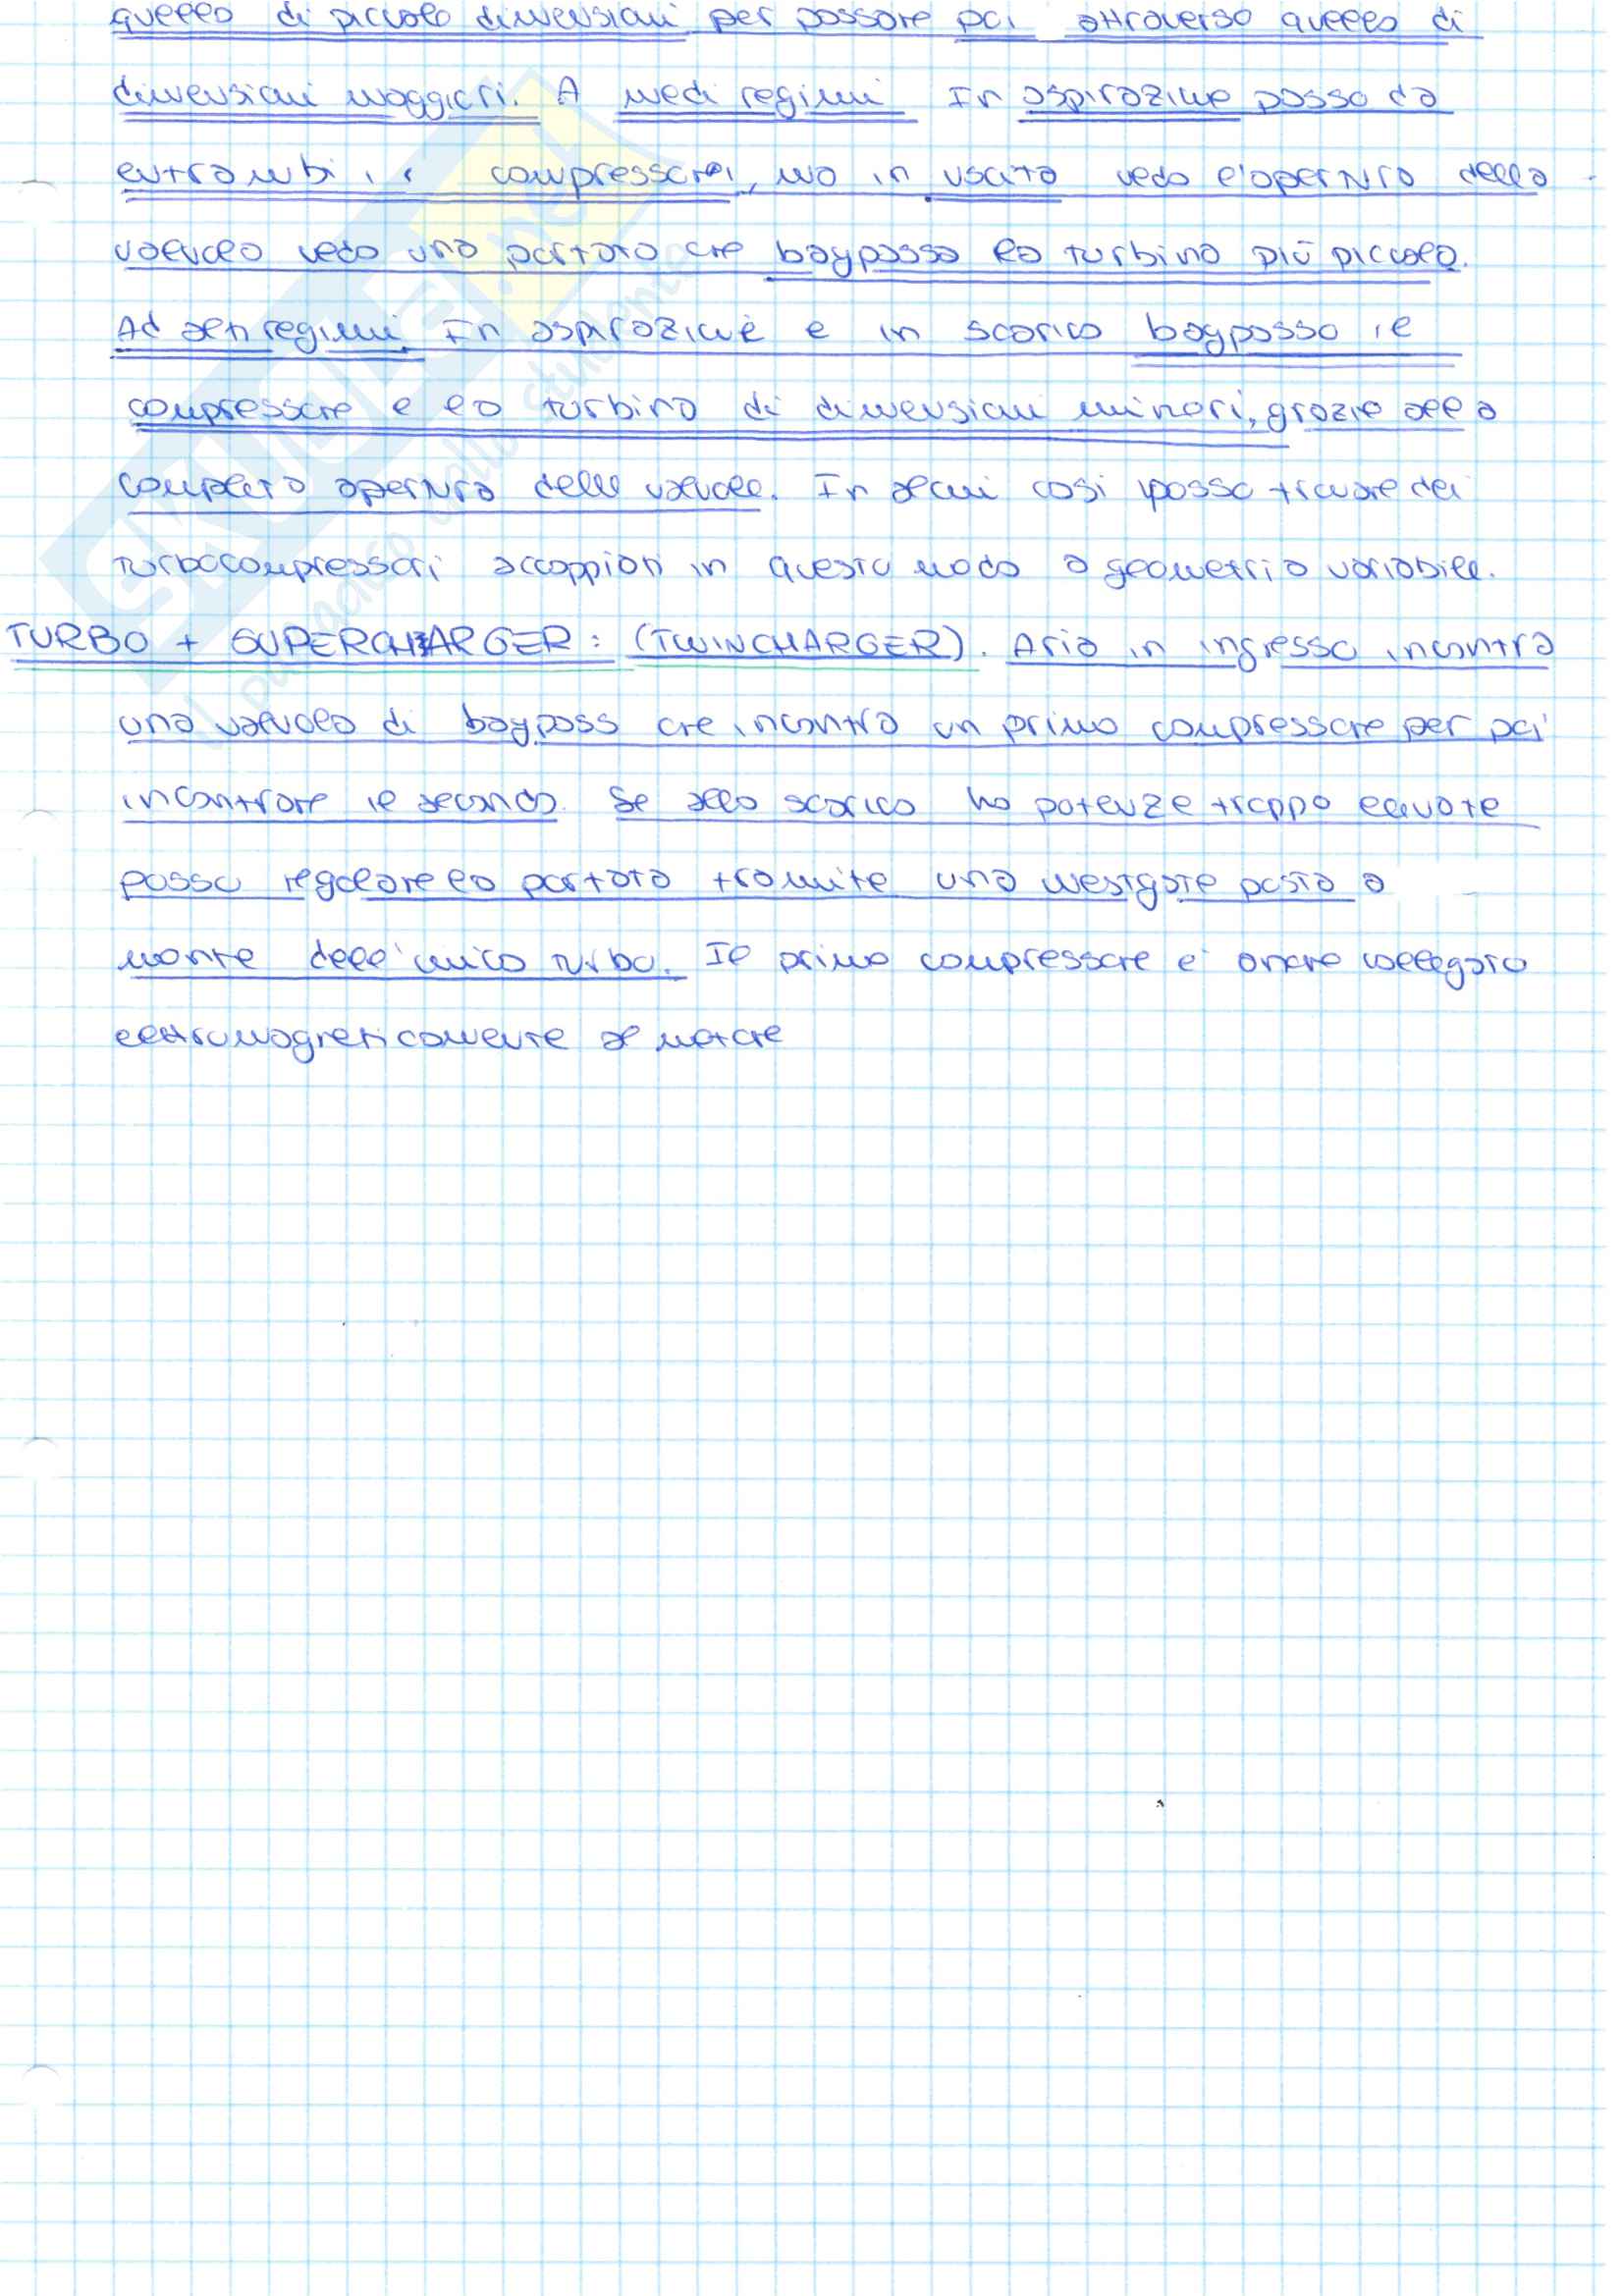 quello di piccole dimensioni per passare poi attraverso quello di
dimensioni maggiori. A medi regimi In aspirazione passo da
entrambi i compressori, ma in uscita vedo l'apertura della
valvola vedo una portata che baypassa la turbina più piccola.
Ad alti regimi In aspirazione e in scarico baypasso il
compressore e la turbina di dimensioni minori, grazie alla
completa apertura delle valvole. In alcuni casi posso trovare dei
turbocompressori accoppiati in questo modo a geometria variabile.
TURBO + SUPERCHARGER: (TWINCHARGER). Aria in ingresso incontra
una valvola di baypass che incontra un primo compressore per poi
incontrare il secondo. Se allo scarico ho potenze troppo elevate
posso regolare la portata tramite una westgate posta a
monte dell'unico turbo. Il primo compressore e' anche collegato
elettromagneticamente al motore
SKUOLA.net
il paradiso dello studente